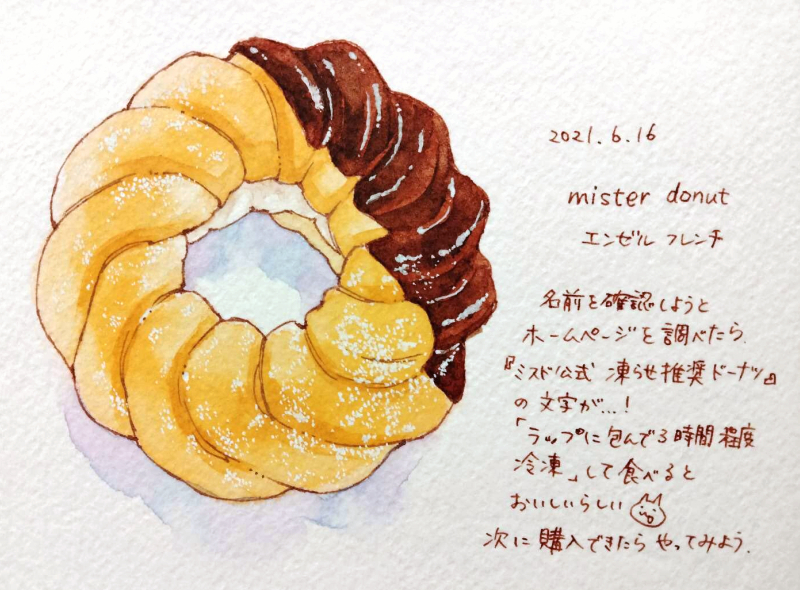 2021.6.16
mister donut
エンゼル フレンチ
名前を確認しようと
ホームページを調べたら、
『ミスド公式 凍らせ推奨ドーナツ』
の文字が…!
「ラップに包んで3時間程度
冷凍」して食べると
おいしいらしい
次に購入できたら やってみよう.